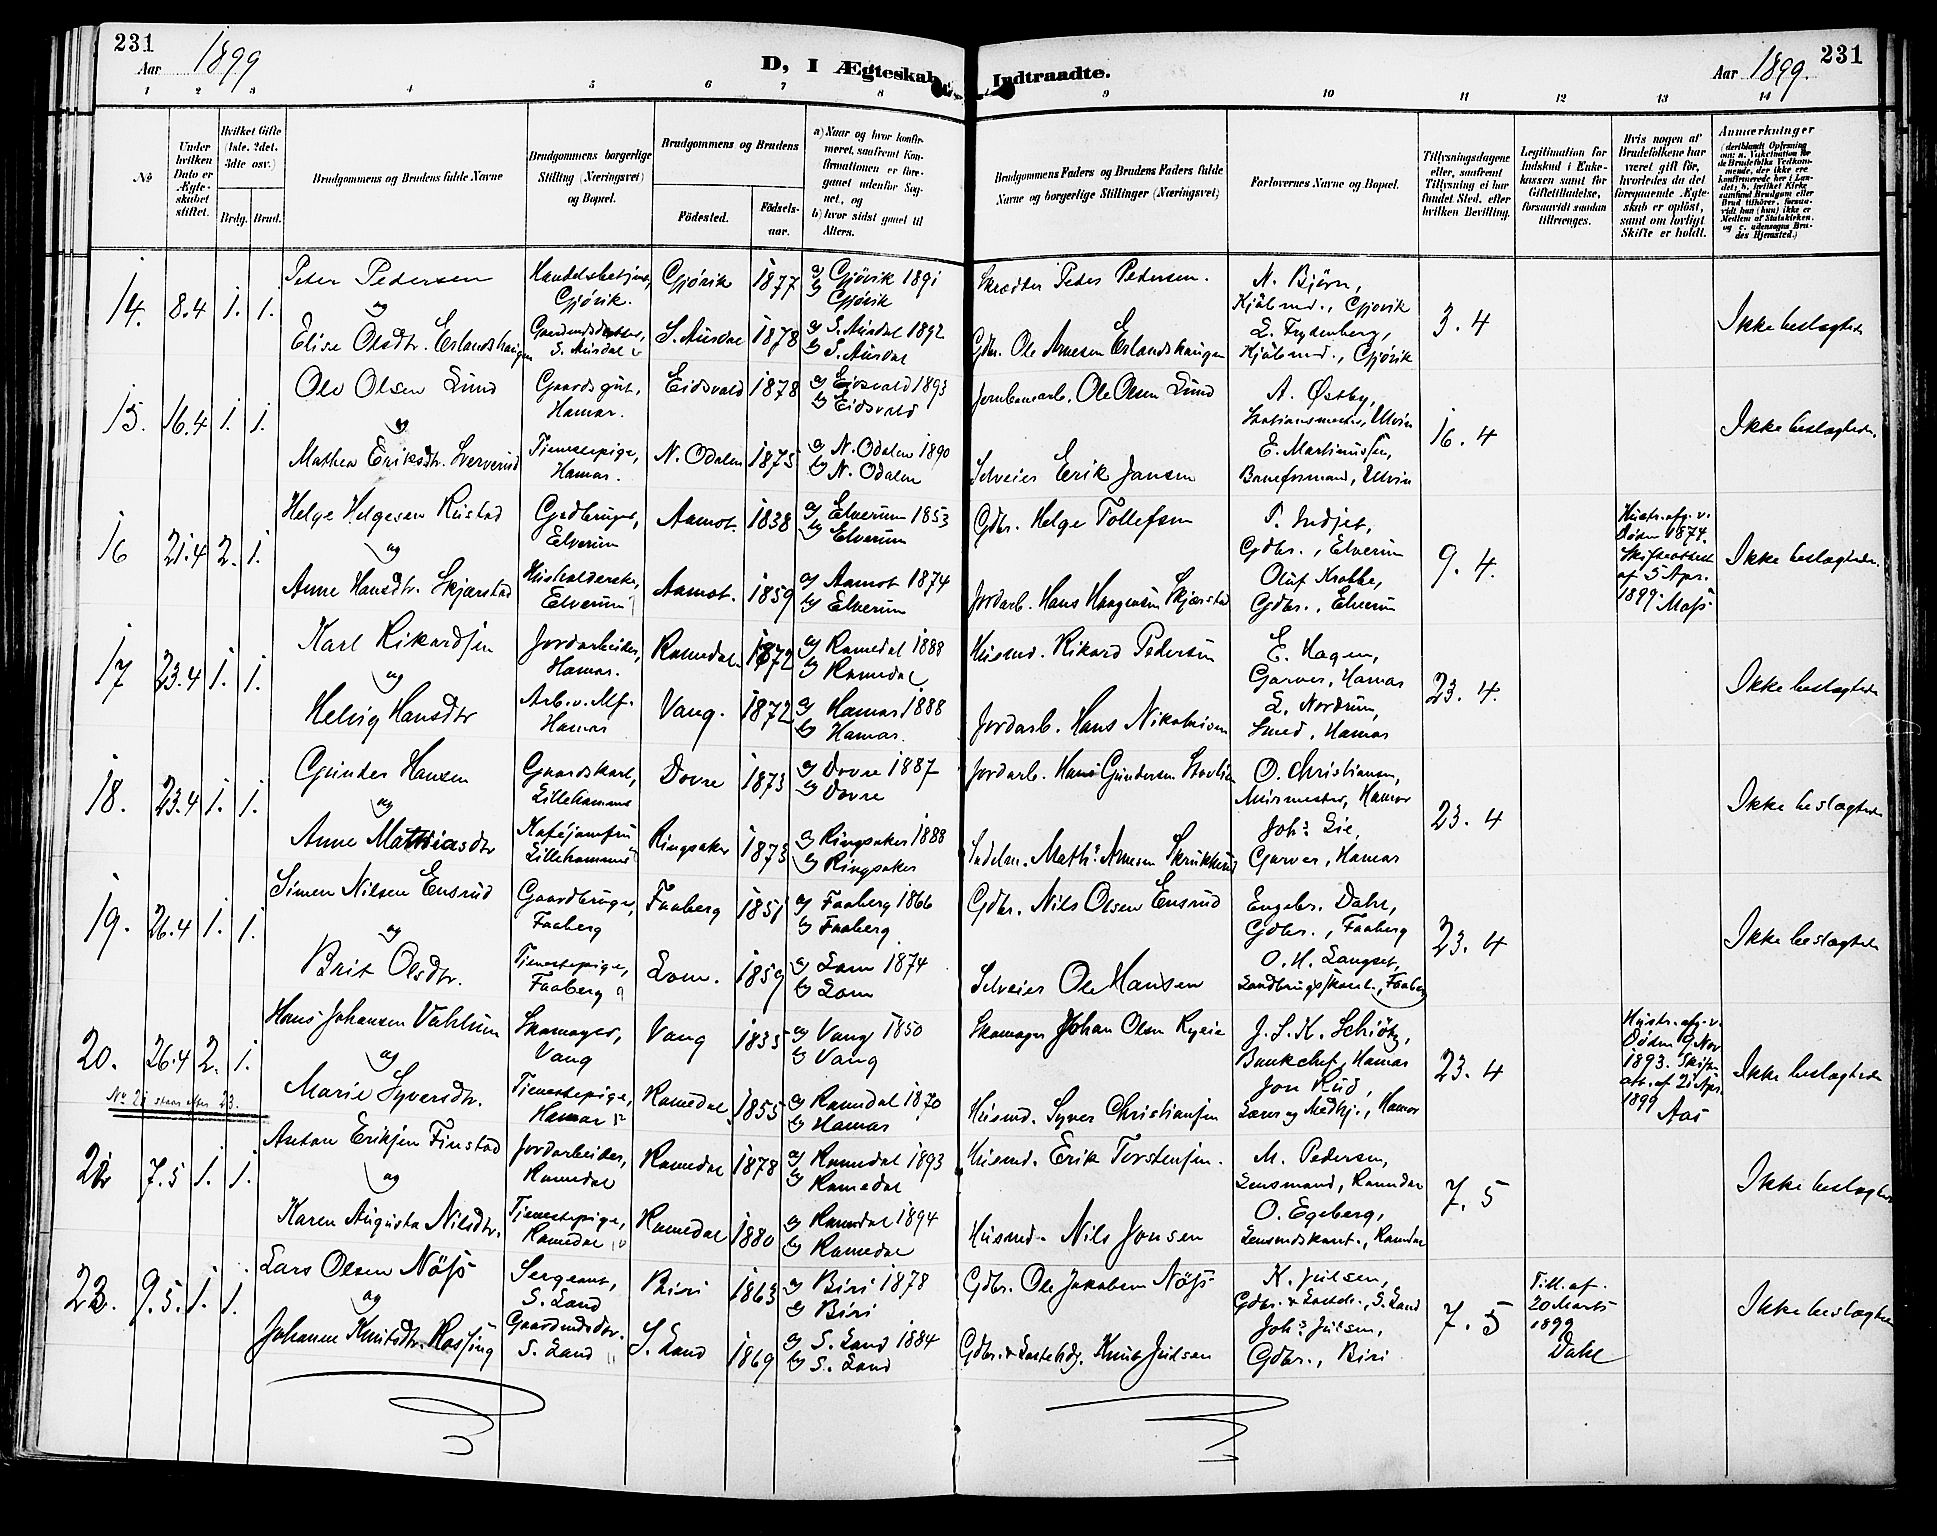 231
Aar 1899
D, I Ægteskab Indtraadte.
Aar 1899.
231
1 2 3 4 5 6 7 8 9 10 11 12 13 14
No
Under hvilken Dato er Ægteskabet stiftet.
Hvilket Gifte (1ste, 2det, 3die osv.)
Brdg. Brud.
Brudgommens og Brudens fulde Navne
Brudgommens borgerlige Stilling (Næringsvei) og Bopæl.
Brudgommens og Brudens
Fødested.
Fødselsaar.
a) Naar og hvor konfirmeret, saafremt Konfirmationen er foregaaet udenfor Sognet, og
b) hvor sidst gaaet til Alters.
Brudgommens Faders og Brudens Faders fulde Navne og borgerlige Stillinger (Næringsvei)
Forlovernes Navne og Bopæl.
Tillysningsdagene eller, saafremt Tillysning ei har fundet Sted, efter hvilken Bevilling.
Legitimation for Indskud i Enkekassen samt for Giftetilladelse, forsaavidt saadan tiltrænges.
Hvis nogen af Brudefolkene har været gift før, hvorledes da det foregaaende Ægteskab er opløst, samt om lovligt Skifte er holdt.
Anmærkninger (deriblandt Oplysning om: a. Vakcination for de Brudefolks Vedkommende, der ikke ere konfirmerede her i Landet; b. hvilket Kirkesamfund Brudgom eller Brud tilhører, forsaavidt han (hun) ikke er Medlem af Statskirken, og c. udensogns Brudes Hjemsted.)
14. 8.4 1. 1.
Peter Pedersen
og
Elise Olsdtr. Erlandshaugen
Handelsbetjent, Gjövik.
Gaardmdsdatter, S. Aurdal
Gjövik 1877
S. Aurdal 1878
a) Gjövik 1891
b) Gjövik
a) S. Aurdal 1892
b) S. Aurdal
Skrædder Peder Pedersen.
Gdbr. Ole Arnesen Erlandshaugen
N. Björn,
Kjöbmd., Gjövik
L. Frydenberg,
Kjöbmd., Gjövik
3.4
Ikke beslægtede
15. 16.4 1. 1.
Ole Olsen Lund
og
Mathea Eriksdtr. Sververud
Gaardsgut, Hamar.
Tjenestepige, Hamar.
Eidsvold 1878
N. Odalen 1875
a) Eidsvold 1893
b) Eidsvold
a) N. Odalen 1890
b) N. Odalen
Jernbanearb. Ole Olsen Lund
Selveier Erik Jansen
A. Østby,
Stationsmester, Ulvin
E. Martinussen,
Baneformand, Ulvin
16.4
Ikke beslægtede.
16 21.4 2. 1.
Helge Helgesen Rustad
og
Anne Hansdtr. Skjærstad
Gaardbruger, Elverum
Husholderske, Elverum
Aamot. 1838
Aamot. 1859
a) Elverum 1853
b) Elverum
a) Aamot 1874
b) Elverum
Gdbr. Helge Tollefsen
Jordarb. Hans Haagensen Skjærstad
P. Indset,
Gdbr., Elverum
Oluf Krabbe,
Gdbr., Elverum
9.4.
Hustr. afg. v. Döden 1874. Skifteattest af 5 Apr. 1899. Moss
Ikke beslægtede.
17 23.4 1. 1.
Karl Rikardsen
og
Helvig Hansdtr
Jordarbeider, Hamar.
Arb. v. Mf. Hamar
Romedal 1872
Vang. 1872
a) Romedal 1888
b) Romedal
a) Hamar 1888
b) Hamar.
Husmd. Rikard Pedersen
Jordarb. Hans Nikolaisen
E. Hagen,
Garver, Hamar
L. Nordrum,
Smed, Hamar
23.4.
Ikke beslægtede
18. 23.4 1. 1.
Gunder Hansen
og
Anne Mathiasdtr
Gaardskarl, Lillehammer
Kaféjomfru Lillehammer
Dovre 1873
Ringsaker 1873
a) Dovre 1887
b) Dovre
a) Ringsaker 1888
b) Ringsaker
Jordarb. Hans Gundersen
Maths Arnesen Skrukkerud
O. Christiansen,
Murmester, Hamar
Johs Lie,
Garver, Hamar
23.4
Ikke beslægtede
19. 26.4 1. 1.
Simen Nilsen Ensrud
og
Brit Olsdtr.
Gaardbruger, Faaberg
Tjenestepige, Faaberg
Faaberg 1851
Lom. 1859
a) Faaberg 1866
b) Faaberg
a) Lom 1874
b) Lom
Gdbr. Nils Olsen Ensrud
Selveier Ole Hansen
Engebr. Dahl,
Gdbr., Faaberg
O. H. Langset,
Landbrugskand., Faaberg
23.4
Ikke beslægtede
20. 26.4 2. 1.
Hans Johansen Vahlum
og
Marie Syversdtr.
Skomager, Vang
Tjenestepige, Hamar
Vang 1835
Romedal 1855
a) Vang 1850
b) Vang
a) Romedal 1870
b) Hamar
Skomager Johan Olsen
Husmd. Syver Christiansen
J. S. K. Schiötz,
Bankchef, Hamar
Jon Rud,
Hamar
23.4
Hustr. afg. v. Döden 9 Nov 1893. Skifteatt. af 21 Apr. 1899 Aas
Ikke beslægtede
No 21 staar efter 23.
22 7.5 1. 1.
Anton Eriksen Finstad
og
Karen Augusta Nilsdtr.
Jordarbeider, Romedal
Tjenestepige, Romedal
Romedal 1878
Romedal 1880
a) Romedal 1893
b) Romedal
a) Romedal 1894
b) Romedal
Husmd. Erik Torstensen.
Husmd. Nils Jonsen
M. Pedersen,
Lensmand, Romedal
O. Egeberg,
Lensmdskont., Romedal
7.5
Ikke beslægtede
23. 9.5. 1. 1.
Lars Olsen Nöss
og
Johanne Knutsdtr. Røssjng
Sergeant, S. Land
Gaardmdsdtr. S. Land
Biri 1863
S. Land 1869
a) Biri 1878
b) Biri
a) S. Land 1884
b) S. Land
Gdbr. Ole Jakobsen Nöss
Knut Julsen
K. Julsen,
S. Land
Johs Julsen,
Gdbr., Biri
7.5
Till. af. 20 Marts 1899 Dahl
Ikke beslægtede